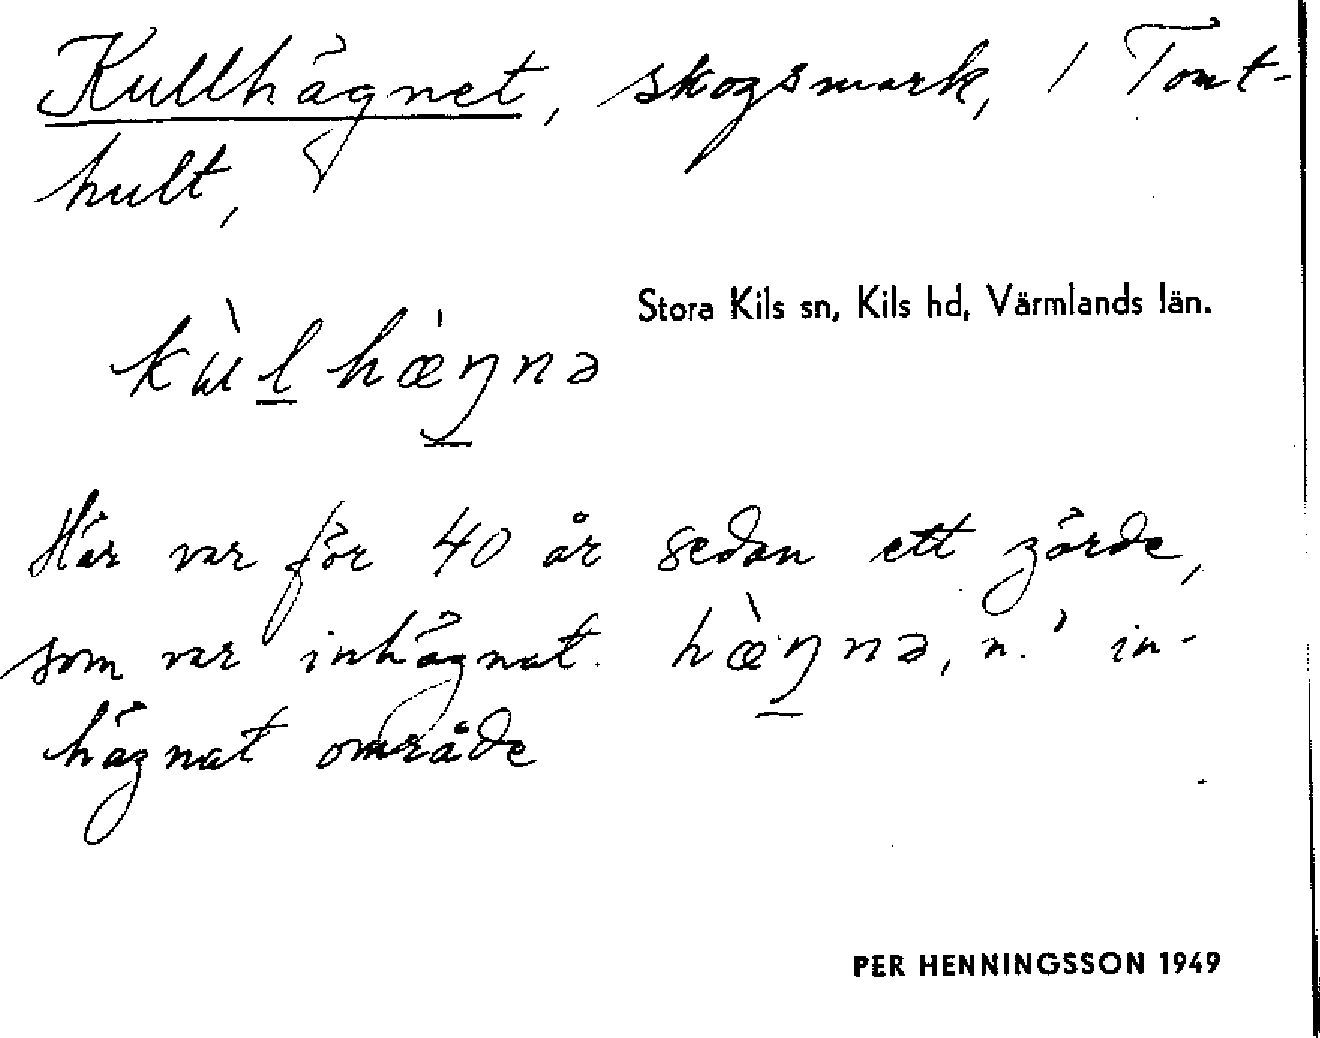 Kullhägnet, skogsmark, / Tomt-
hult,
Stora Kils sn, Kils hd, Värmlands län.
kùlhæ̀ŋnə
Här var för 40 år sedan ett gärde,
som var inhägnat. hæ̀ŋnə, n. ' in-
hägnat område
PER HENNINGSSON 1949